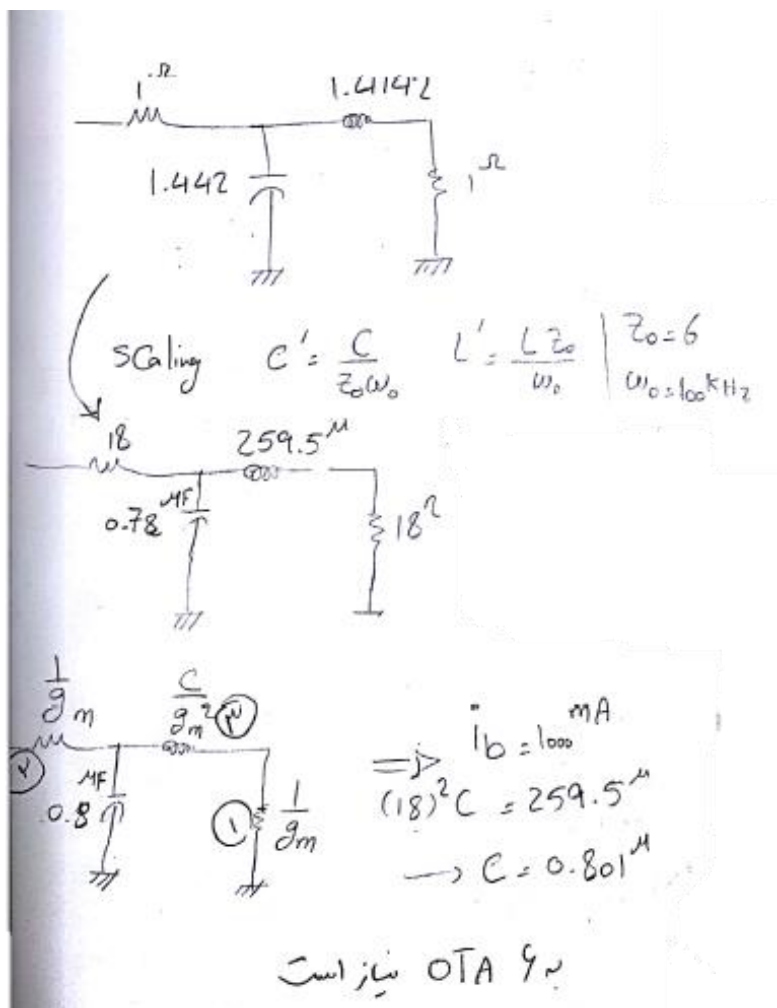 1Ω 1.4142
1.442 1Ω
Scaling C' = C / Z₀ω₀ L' = L Z₀ / ω₀ | Z₀ = 6
ω₀ = 100 kHz
18 259.5 μ
0.78 μF 18 Ω
1/gm C/gm² ③ ⇒ ib = 1000 mA
۲ 0.8 μF ① 1/gm (18)² C = 259.5 μ
→ C = 0.801 μ
به ۶ OTA نیاز است